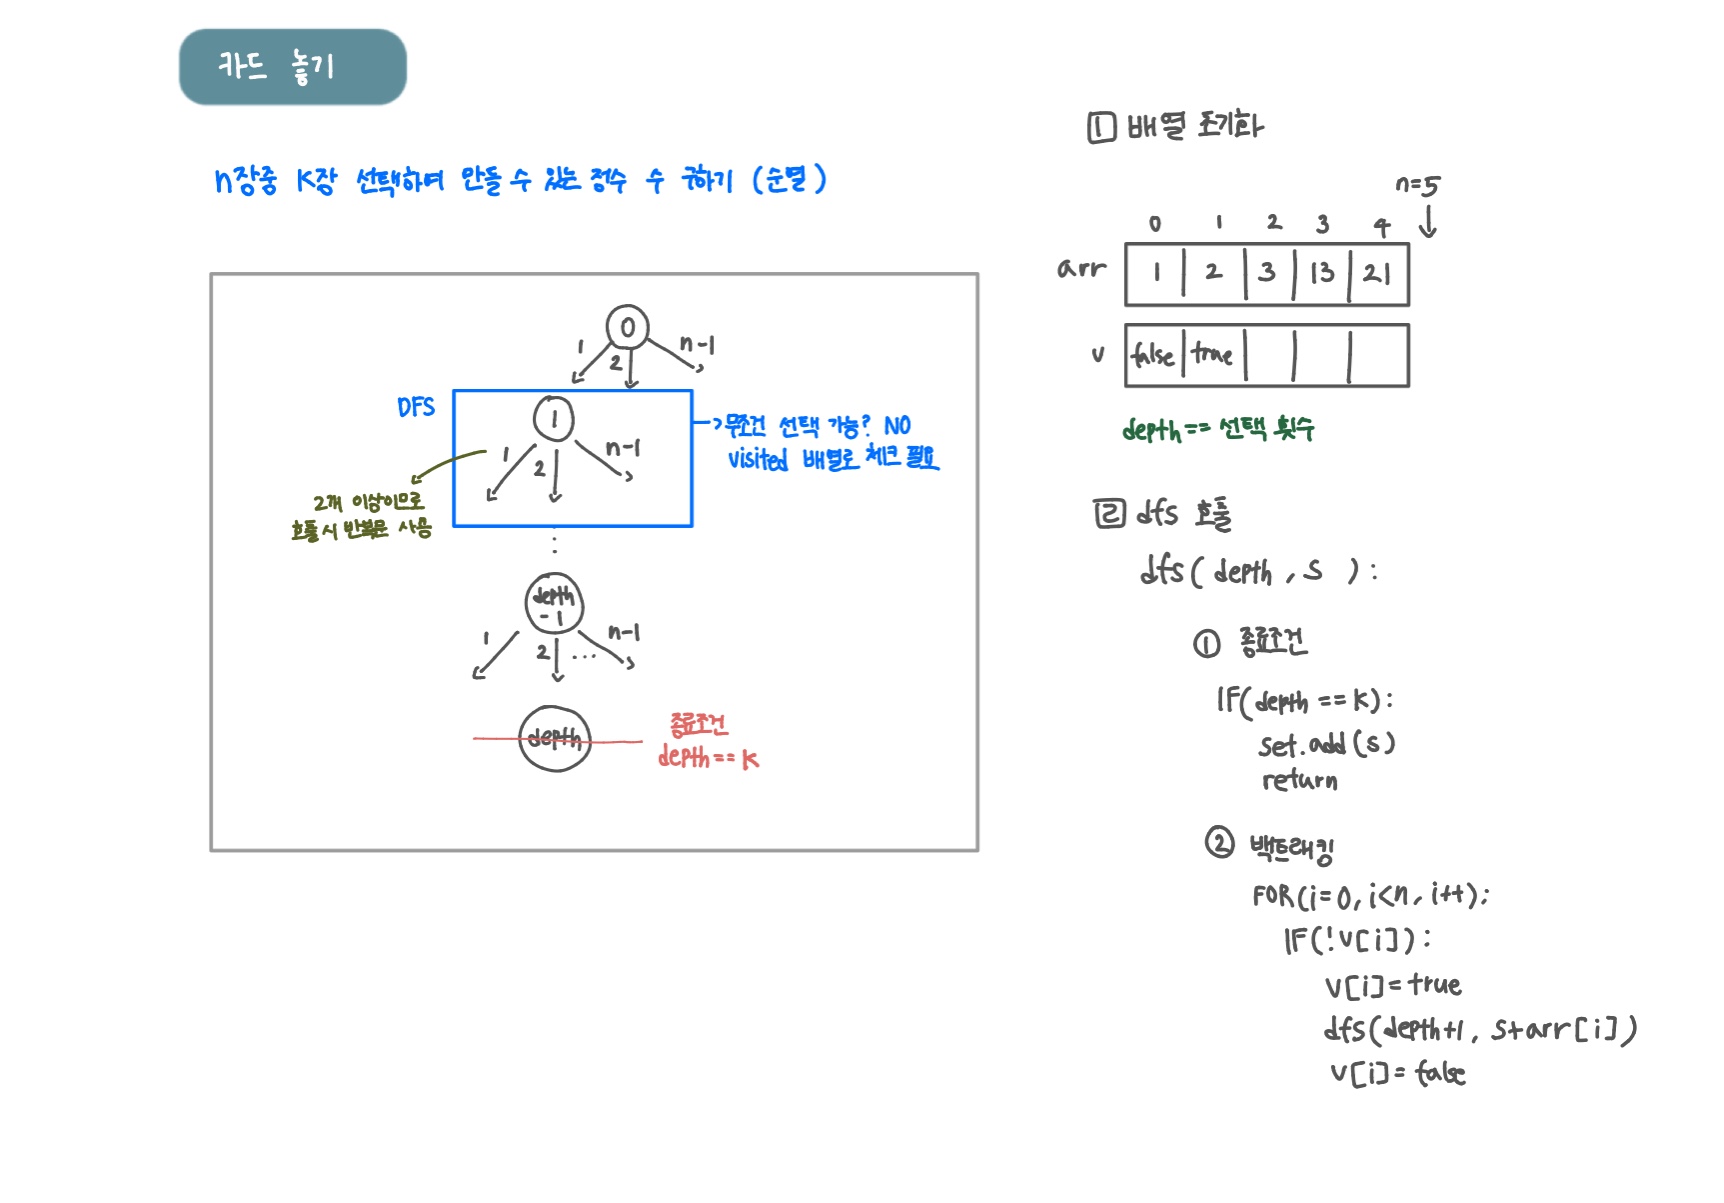 카드 놓기
n장중 K장 선택하여 만들 수 있는 정수 수 구하기 (순열)
0
1
2
n-1
DFS
1
1
2
n-1
→무조건 선택 가능? NO
visited 배열로 체크 필요
2개 이상이므로
호출시 반복문 사용
depth
-1
1
2
...
n-1
depth
종료조건
depth==K
1 배열 초기화
n=5
0 1 2 3 4
arr 1 2 3 13 21
v false true
depth== 선택 횟수
2 dfs 호출
dfs( depth , s ):
① 종료조건
IF(depth ==K):
set.add(s)
return
② 백트래킹
FOR(i=0, i<n, i++):
IF(!v[i]):
v[i]=true
dfs(depth+1, s+arr[i])
v[i]=false